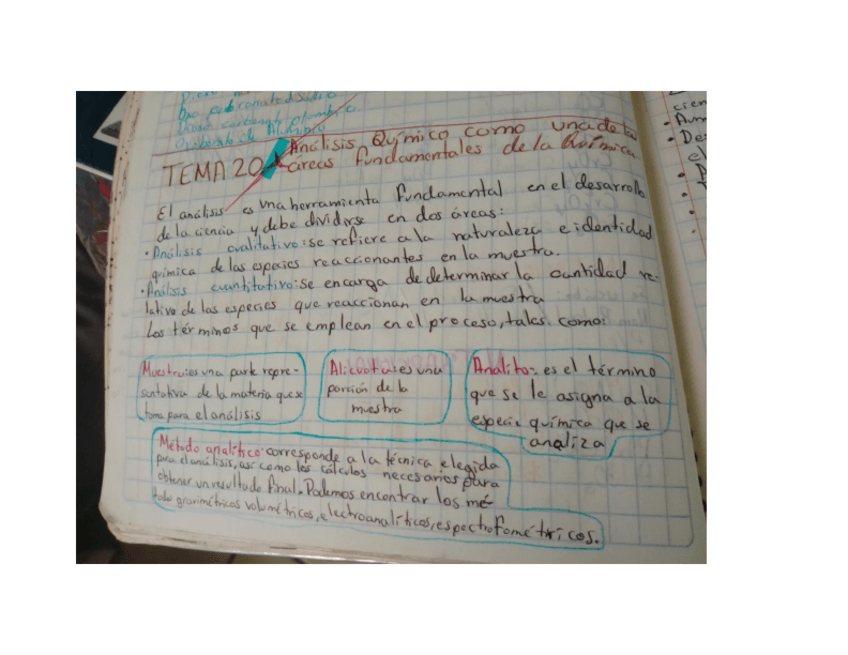 Análisis Químico como una de las
TEMA 20 áreas fundamentales de la Química
El análisis es una herramienta fundamental en el desarrollo
de la ciencia y debe dividirse en dos áreas:
• Análisis cualitativo: se refiere a la naturaleza e identidad
química de las especies reaccionantes en la muestra.
• Análisis cuantitativo: se encarga de determinar la cantidad re-
lativa de las especies que reaccionan en la muestra
Los términos que se emplean en el proceso, tales como:
Muestra: es una parte repre-
sentativa de la materia que se
toma para el análisis
Alicuota: es una
porción de la
muestra
Analito: es el término
que se le asigna a la
especie química que se
analiza
Método analítico: corresponde a la técnica elegida
para el análisis, así como los cálculos necesarios para
obtener un resultado final. Podemos encontrar los mé-
todos gravimétricos volumétricos, electroanalíticos, espectrofométricos.